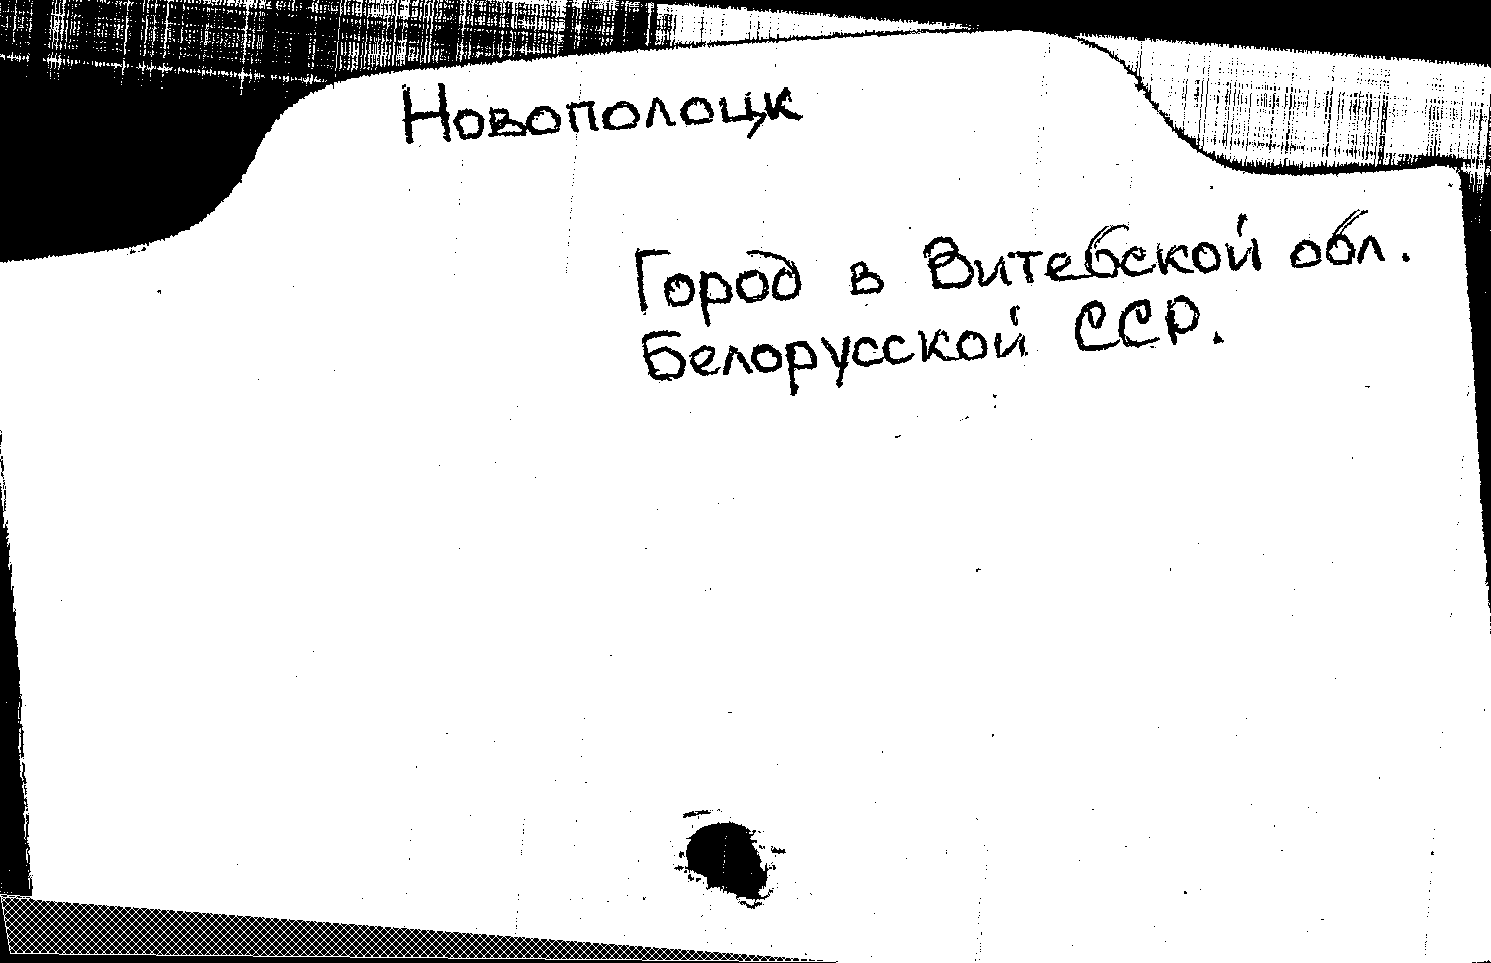 Новополоцк
Город в Витебской обл.
Белорусской ССР.